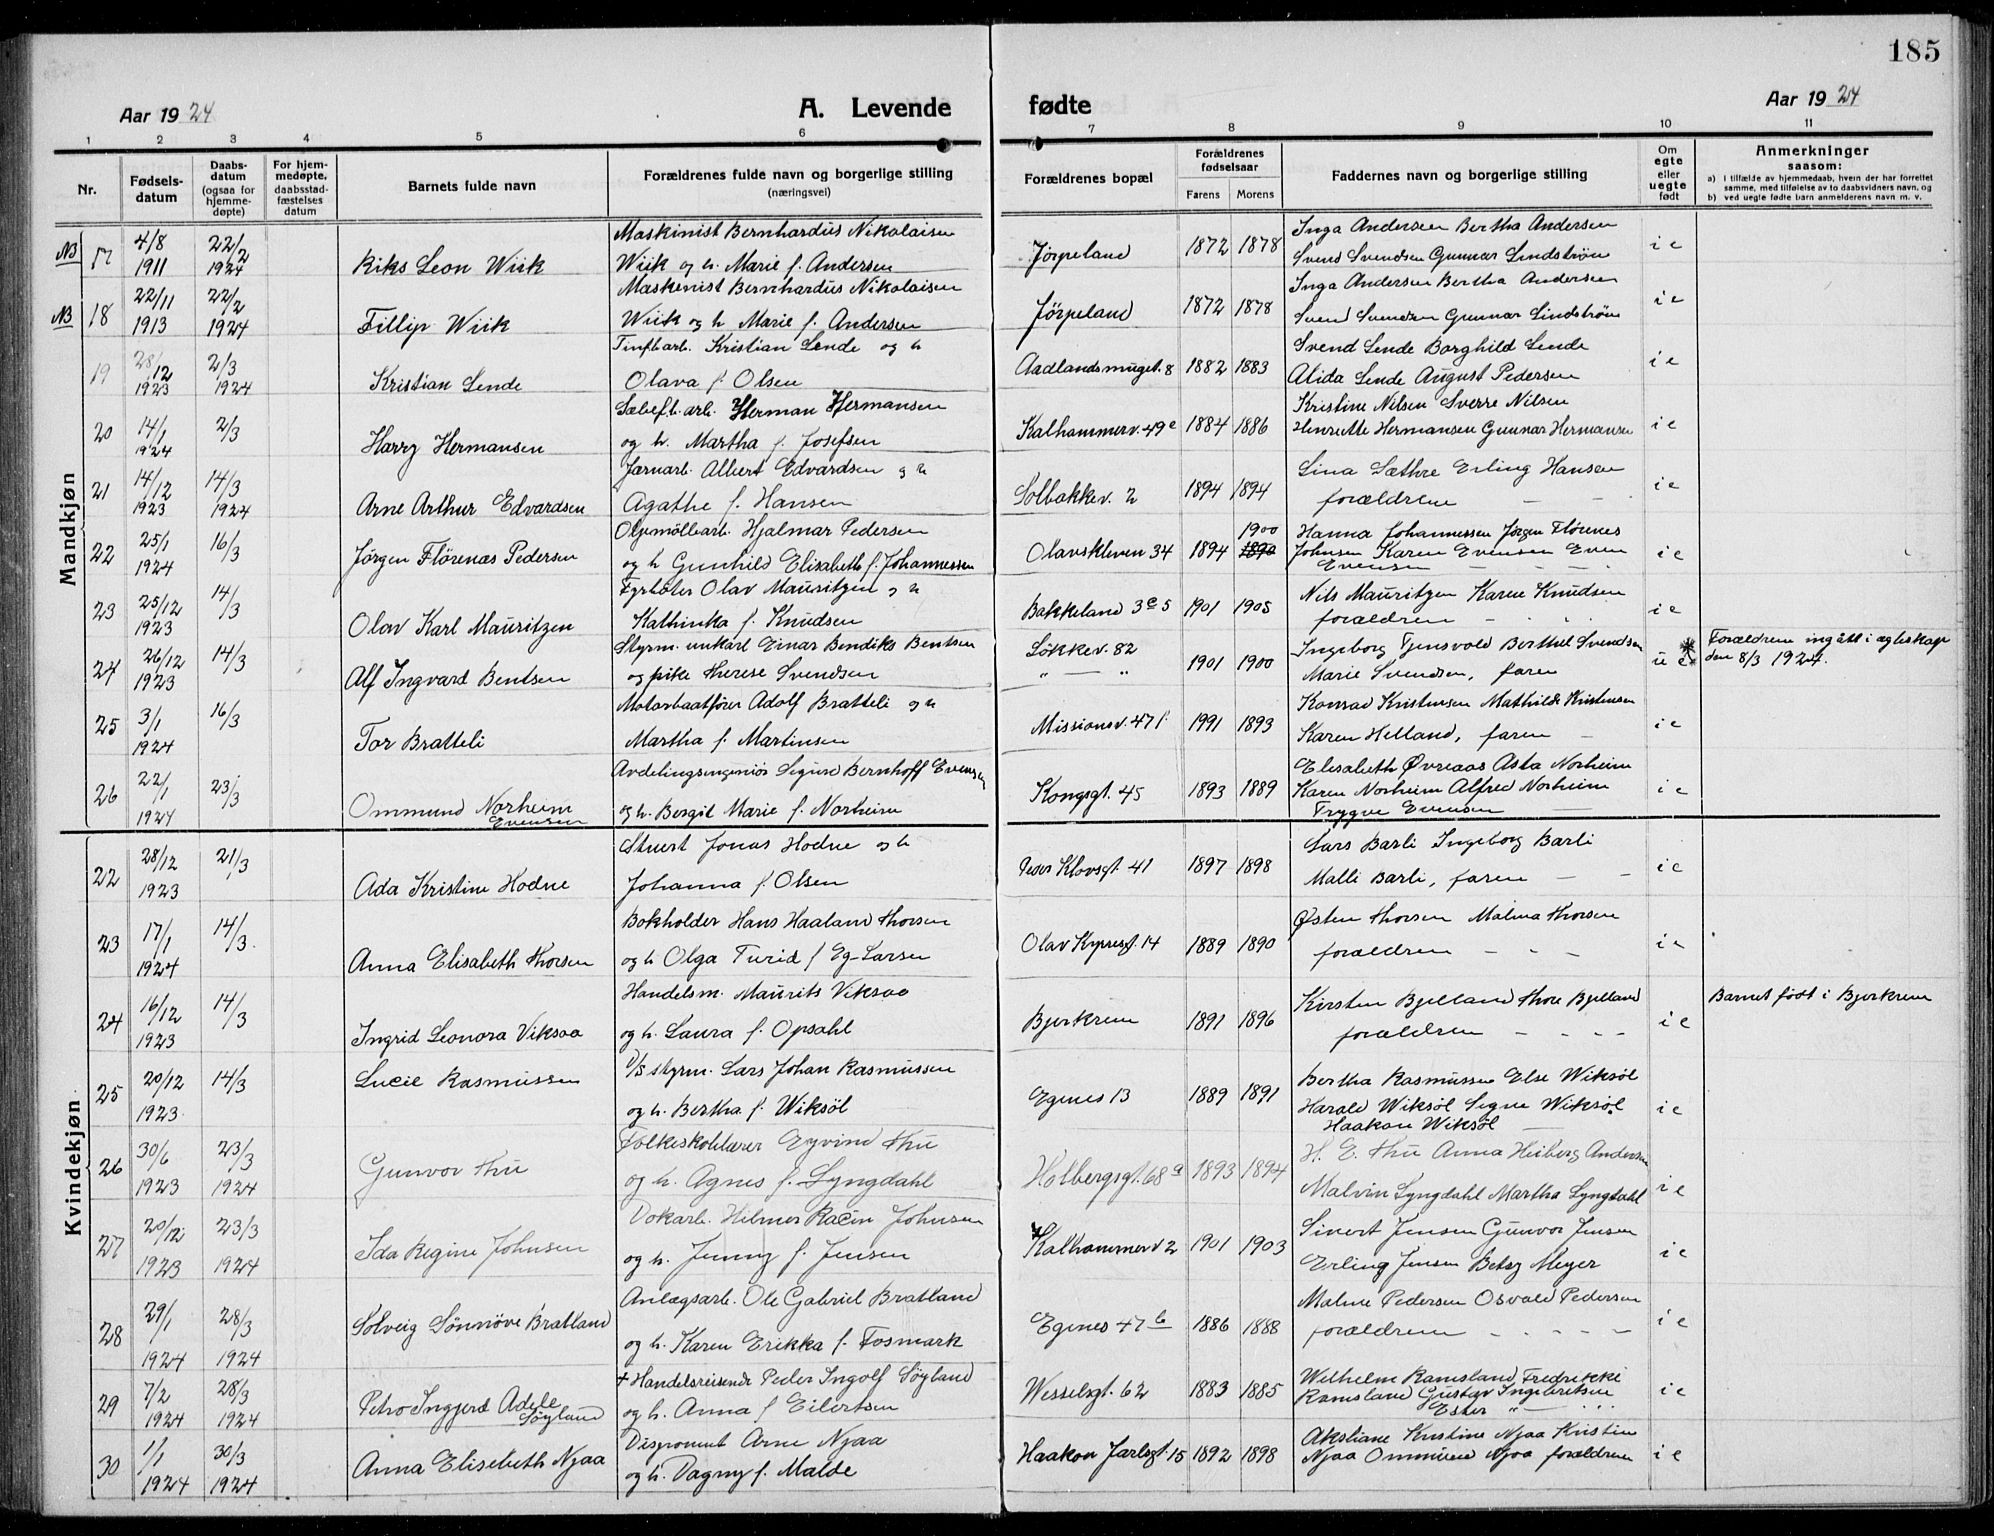 185
Aar 1924 A. Levende fødte Aar 1924
1 2 3 4 5 6 7 8 9 10 11
Nr. Fødsels-datum Daabs-datum (ogsaa for hjemme-døpte) For hjem-medøpte. daabsstad-fæstelses datum Barnets fulde navn Forældrenes fulde navn og borgerlige stilling (næringsvei) Forældrenes bopæl Forældrenes fødselsaar Farens Morens Faddernes navn og borgerlige stilling Om egte eller uegte født Anmerkninger saasom:
a) I tilfælde av hjemmedaab, hvem der har forrettet samme, med tilføielse av to daabsvidners navn, og
b) ved uegte fødte barn anmelderens navn m. v.
Mandkjøn
NB 17 4/8 1911 22/2 1924 Riks Leon Wiik Maskinist Bernhardus Nikolaisen
Wiik og h. Marie f. Andersen Jørpeland 1872 1878 Inga Andersen Bertha Andersen
Svend Svendsen Gunnar Lindstrøm i e
NB 18 22/11 1913 22/2 1924 Fillip Wiik Maskinist Bernhardus Nikolaisen
Wiik og h. Marie f. Andersen Jørpeland 1872 1878 Inga Andersen Bertha Andersen
Svend Svendsen Gunnar Lindstrøm i e
19 28/12 1923 2/3 1924 Kristian Sende Tinfbarb. Kristian Sende og h
Olava f. Olsen Aadlandsmuget. 8 1882 1883 Svend Sende Borghild Sende
Alida Sende August Pedersen i e
20 14/1 1924 2/3 Harry Hermansen Sæbef.b.arb. Herman Hermansen
og h. Martha f. Josefsen Kalhammerv. 49c 1884 1886 Kristine Nilsen Sverre Nilsen
Henriette Hermansen Gunnar Hermansen i e
21 14/12 1923 14/3 1924 Arne Arthur Edvardsen Jærnarb. Albert Edvardsen og h
Agathe f. Hansen Solbakkev. 2 1894 1894 Lina Sæthre Erling Hansen
forældrene - - i e
22 25/1 1924 16/3 Jørgen Flørenæs Pedersen Oljemöllearb. Hjalmar Pedersen
og h Gunhild Elisabeth f. Johannessen Olavskleven 34 1894 1900 1890 Hanna Johannessen Jørgen Flørenes
Johnsen Karen Evensen Even
Evensen - - - i e
23 25/12 1923 14/3 Olav Karl Mauritzen Fyrbøter Olav Mauritzen og h
Kathinka f. Knudsen Bakkeland 3c 5 1901 1905 Nils Mauritzen Karen Knudsen
forældren - i e
24 26/12 1923 14/3 Alf Ingvard Bentsen Styrm. unkarl Einar Bendiks Bentsen
og pike Therese Svendsen Løkkev. 82
" — " 1901 1900 Ingeborg Tjensvold Berthel Svendsen
Marie Svendsen, faren u e Forældrene ingått i ægteskap
den 8/3 1924.
25 3/1 1924 16/3 Tor Bratteli Motorbaatfører Adolf Bratteli og h
Martha f. Martinsen Missionsv. 47 f. 1991 1893 Konrad Kristensen Mathilde Kristensen
Karen Helland, faren - i e
26 22/1 1924 23/3 Ommund Norheim
Evensen Avdelingsingeniør Sigurd Bernhoff Evensen
og h. Bergit Marie f. Norheim Kongsgt. 45 1893 1889 Elisabeth Øvreaas Asta Norheim
Karen Norheim Alfred Norheim
Trygve Evensen i e
Kvindekjøn
22 28/12 1923 21/3 Ada Kristine Hodne Stuert Jonas Hodne og h
Johanna f. Olsen Peder Klovsgt. 41 1897 1898 Lars Barli Ingeborg Barli
Malli Barli, faren - - i e
23 17/1 1924 14/3. Anna Elisabeth Thorsen Bokholder Hans Haaland Thorsen
og h Olga Turid f. Eg-Larsen Olav Kyrresgt. 14 1889 1890 Østen Thorsen Malina Thorsen
forældren - - - i e
24 16/12 1923 14/3 Ingrid Leonora Viksaa Handelsm. Maurits Viksaa
og h. Laura f. Opsahl Bjerkrem 1891 1896 Kirsten Bjelland Thore Bjelland
forældren - - - - i e Barnet født i Bjerkrem
25 20/12 1923. 14/3 Lucie Rasmussen D/s styrm. Lars Johan Rasmussen
og h. Bertha f. Wiksøl Egenes 13 1889 1891 Bertha Rasmussen Else Wiksøl
Harald Wiksøl Signe Wiksøl
Haakon Wiksøl i e
26 30/6 1923 23/3 1924 Gunvor Thu Folkeskolelærer Eyvind Thu
og h. Agnes f. Lyngdahl Holbergsgt. 68a 1893 1894 H. E. Thu Anna Heiberg Andersen
Malvin Lyngdahl Martha Lyngdahl i e
27 20/12 1923 23/3 1924 Ida Regine Johnsen Dokarb. Hilmer Racin Johnsen
og h. Jenny f. Jensen Kalhammerv 2 1901 1903 Sivert Jensen Gunvor Jensen
Erling Jensen Betsy Meyer i e
28 29/1 1924 28/3 1924 Solveig Sønnøve Bratland Anlægsarb. Ole Gabriel Bratland
og h. Karen Erikka f. Fosmark Egenes 47 b 1886 1888 Malene Pedersen Osvald Pedersen
forældrene - - - - i e
29 7/2 1924 28/3 1924 Petro Ingjerd Adele
Søyland + Handelsreisende Peder Ingolf Søyland
og h. Anna f. Eilertsen Wesselsgt. 62 1883 1885 Wilhelm Ramsland Fredrikke
Ramsland Gustav Ingebritsen
Ester " — i e
30 1/1 1924 30/3 1924 Anna Elisebeth Njaa Disponent Arne Njaa
og h. Dagny f. Malde Haakon Jarlsgt. 15 1892 1898 Aksliane Kristine Njaa Kristin
Njaa Ommund Njaa forældrene i e